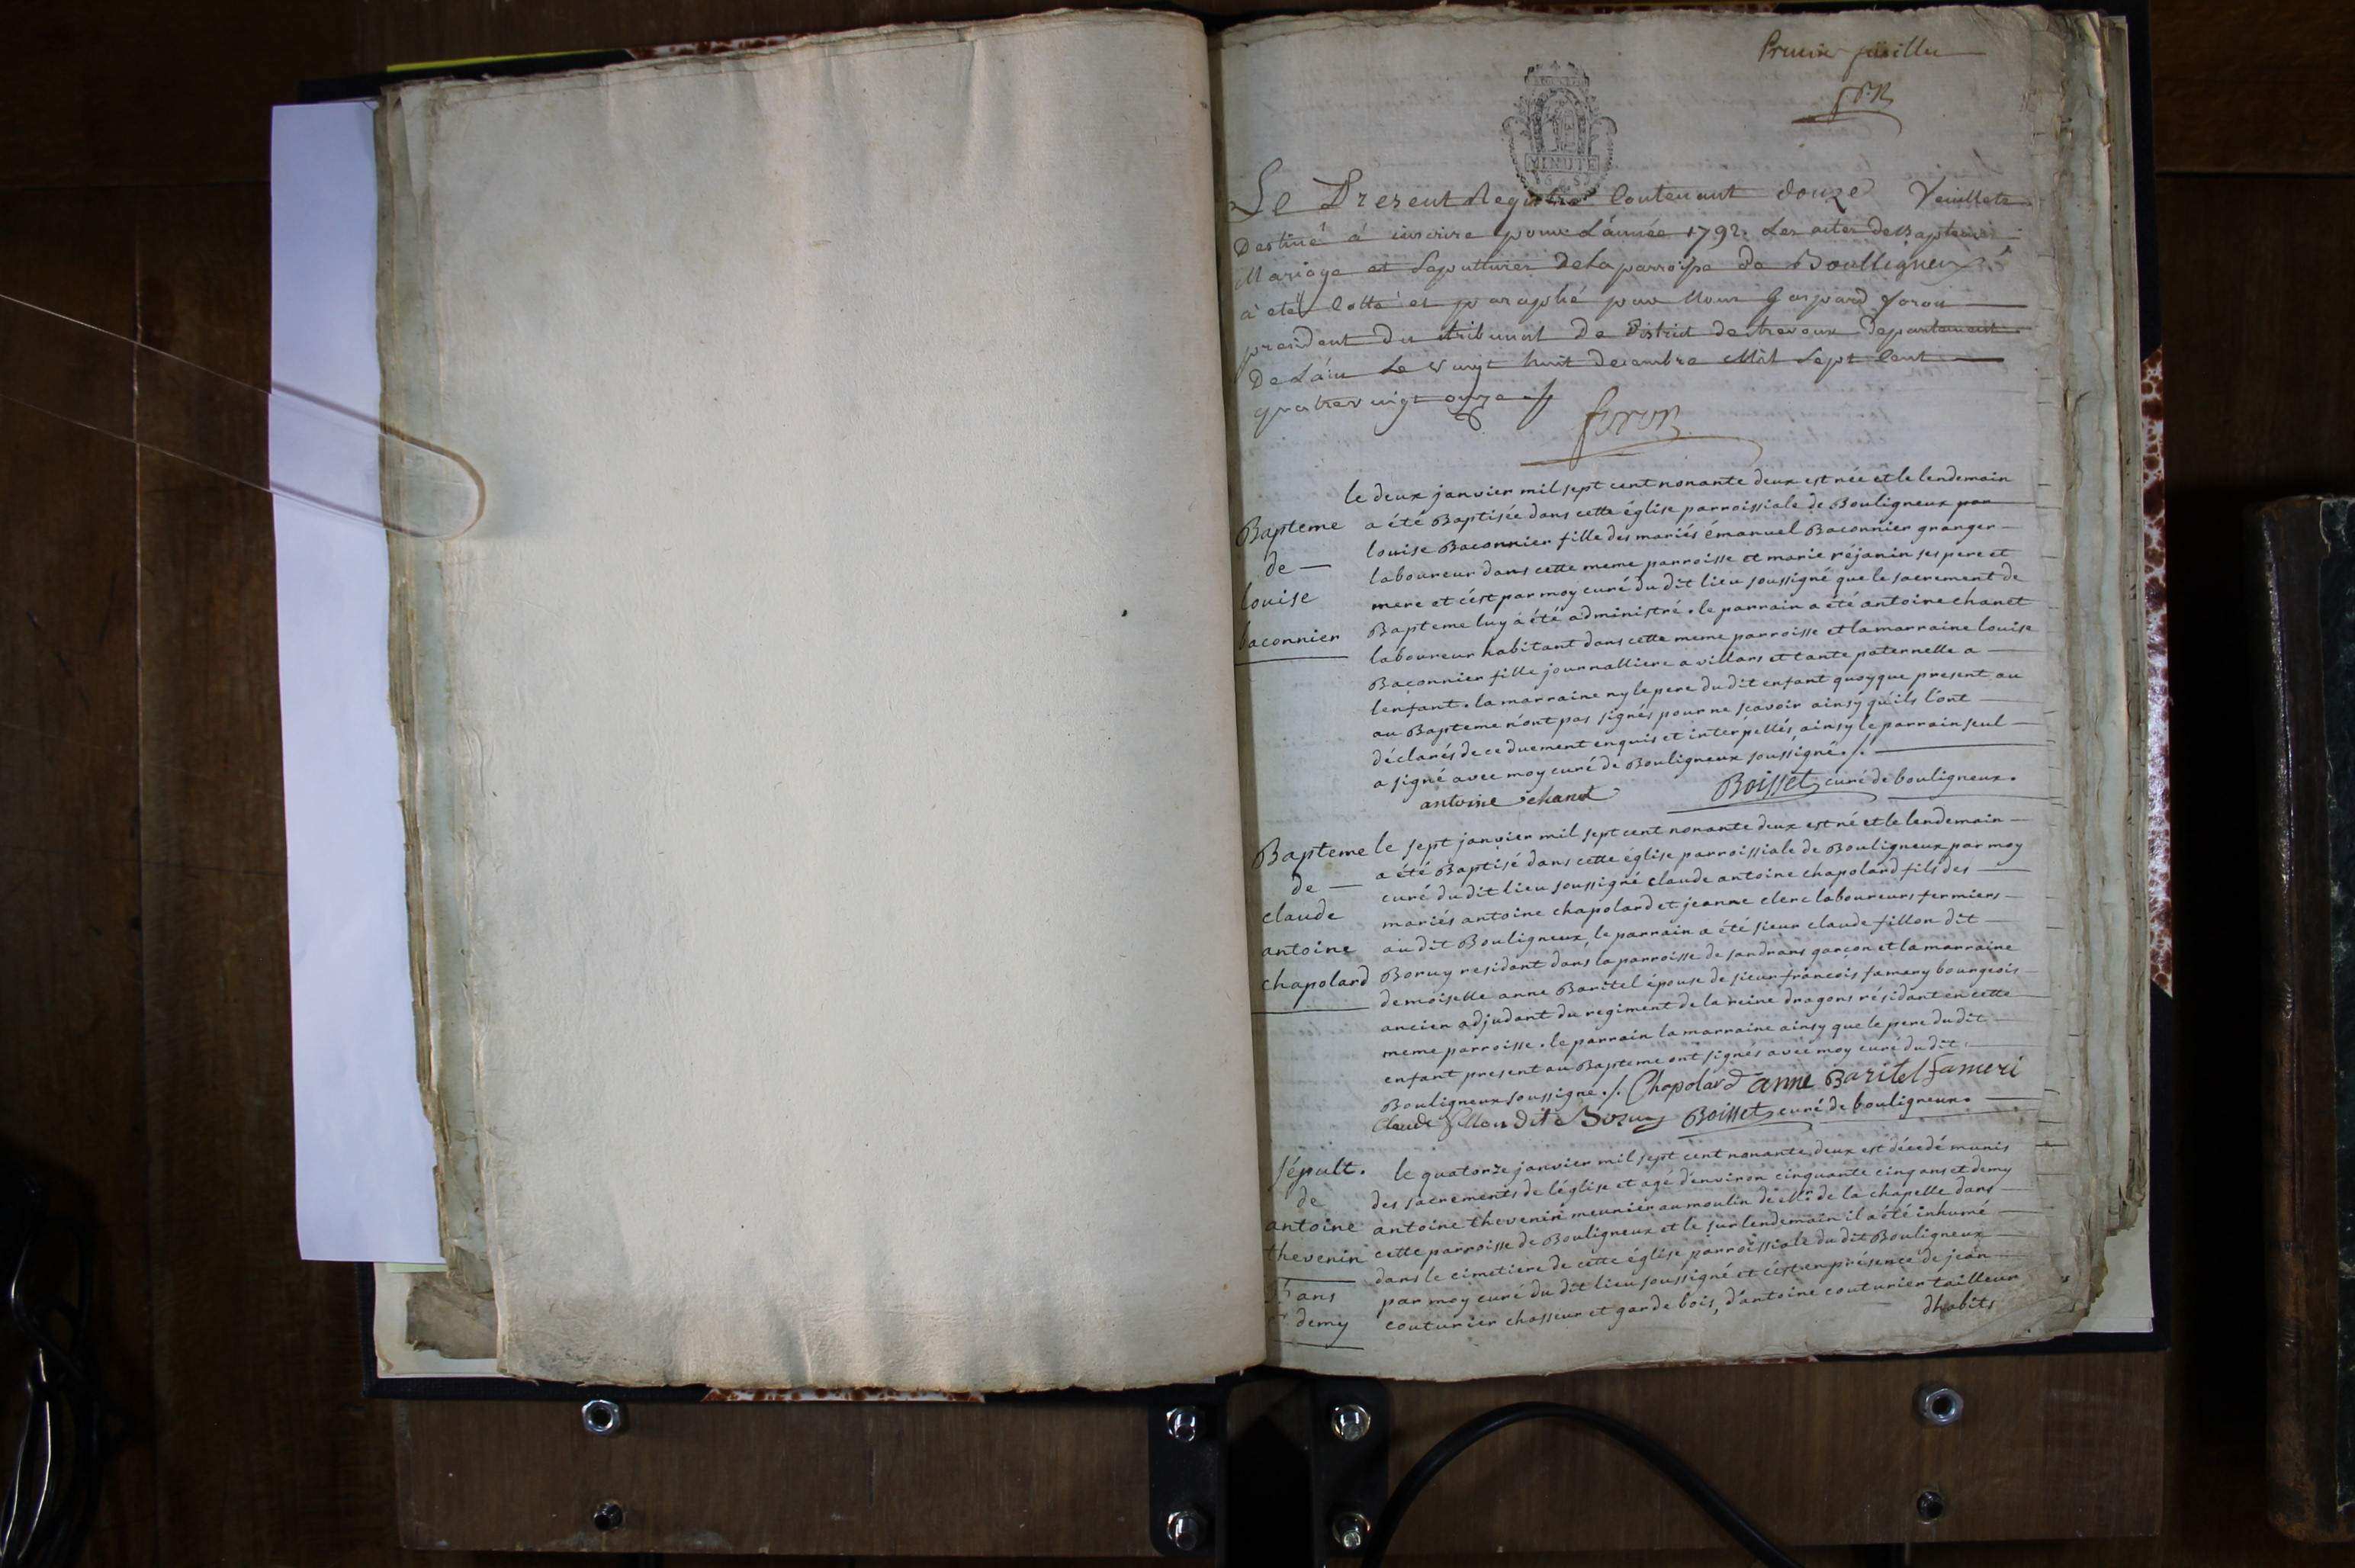 Premier feuillet
MINUTE
Le Present Registre Contenant douze feuillets
Destiné a inscrire pour L'année 1792. Les actes de Baptemes
Mariage et Sepultures de La parroisse de Boulligneux
à eté Cotté et paraphé par Nous Gaspard foron
president du tribunal De District de trevoux Departement
De L'ain Le vingt huit decembre Mil Sept Cent
quatrevingt onze
foron
le deux janvier mil sept cent nonante deux est née et le lendemain
Bapteme
a été Baptisée dans cette église parroissiale de Bouligneux par
louise Baconnier fille des mariés émanuel Baconnier granger
de
laboureur dans cette meme parroisse et marie réjanin ses pere et
louise
mere et c'est par moy curé du dit lieu soussigné que le sacrement de
baconnier
Bapteme luy à été administré. le parrain a été antoine chanet
laboureur habitant dans cette meme parroisse et la marraine louise
Baconnier fille journalliere a villars et tante paternelle a
lenfant. la marraine ny le pere du dit enfant quoyque present au
au Bapteme n'ont pas signés pour ne scavoir ainsy qu'ils l'ont
déclarés de ce duement enquis et interpellés, ainsy le parrain seul
a signé avec moy curé de Bouligneux soussigné./.
antoine chanet Boisset curé de bouligneux.
Bapteme le sept janvier mil sept cent nonante deux est né et le lendemain
a été Baptisé dans cette église parroissiale de Bouligneux par moy
de
curé du dit lieu soussigné claude antoine chapolard fils des
claude
mariés antoine chapolard et jeanne clerc laboureurs fermiers
antoine
au dit Bouligneux, le parrain a été sieur claude fillon dit
chapolard
Boruy residant dans la parroisse de sandrans garçon et la marraine
demoiselle anne Baritel épouse de sieur françois famery bourgeois
ancien adjudant du regiment de la reine dragons résidant en cette
meme parroisse. le parrain la marraine ainsy que le pere du dit
enfant present au Bapteme ont signés avec moy curé du dit
Bouligneux soussigné./. Chapolard anne Baritel fameri
Claude fillon dit Boruy Boisset curé de bouligneux.
sépult.
le quatorze janvier mil sept cent nonante deux est décedé munis
de
des sacrements de léglise et agé d'environ cinquante cinq ans et demy
antoine
antoine thevenin meunier au moulin de Mr. de la chapelle dans
thevenin
cette parroisse de Bouligneux et le surlendemain il a été inhumé
dans le cimetiere de cette église parroissiale du dit Bouligneux
ans
par moy curé du dit lieu soussigné et c'est en présence de jean
demy
couturier chasseur et garde bois, d'antoine couturier tailleur
dhabits